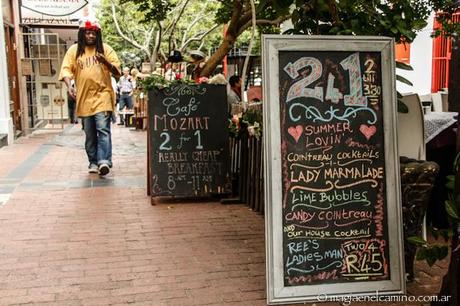 Café
MOZART
2 for 1
REALLY CHEAP
BREAKFAST
2 4 1
SUMMER
LOVIN'
COINTREAU COCKTAILS
LADY MARMALADE
LIME Bubbles
CANDY COINTREAU
AND OUR HOUSE COCKTAIL
REE'S
LADIES MAN
TWO 4
R45
© www.magiaenelcamino.com.ar